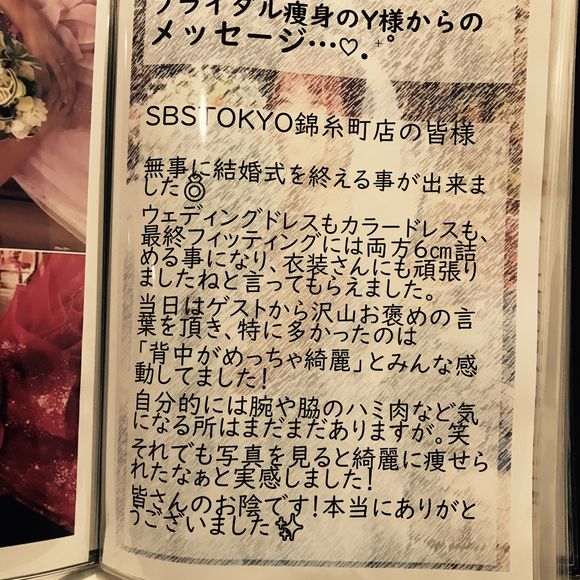 ブライダル痩身のY様からの
メッセージ…♡.+°
SBSTOKYO錦糸町店の皆様
無事に結婚式を終える事が出来ま
した💍
ウェディングドレスもカラードレスも、
最終フィッティングには両方6cm詰
める事になり、衣装さんにも頑張り
ましたねと言ってもらえました。
当日はゲストから沢山お褒めの言
葉を頂き、特に多かったのは
「背中がめっちゃ綺麗」とみんな感
動してました！
自分的には腕や脇のハミ肉など気
になる所はまだまだありますが。笑
それでも写真を見ると綺麗に痩せら
れたなぁと実感しました！
皆さんのお陰です！本当にありがと
うございました✨